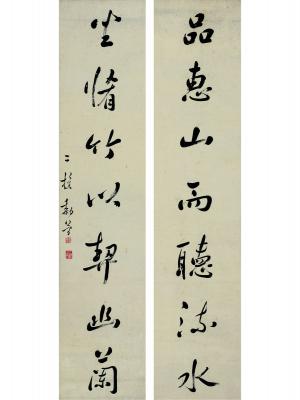 品惠山而聽流水
坐脩竹以契幽蘭
二樵